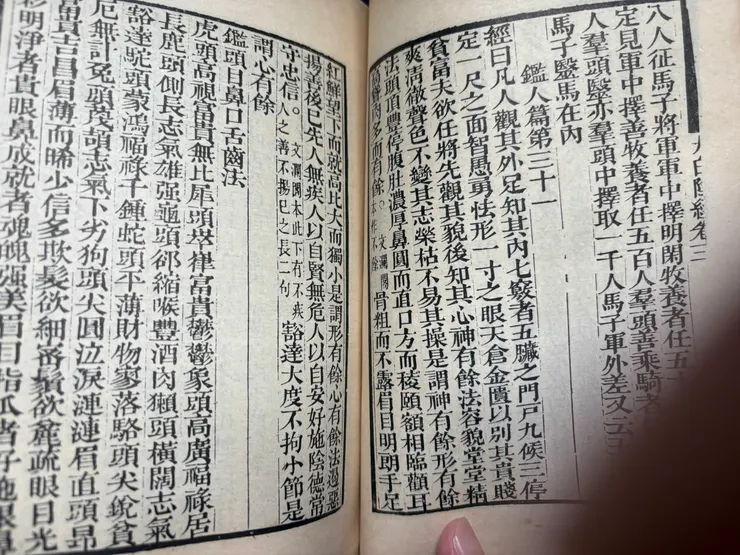 太白陰經卷三
八人征馬子將軍軍中擇明閑牧養者任五
定見軍中擇善牧養者任五百人羣頭善乘騎者
人羣頭毉亦羣頭中擇取一千人馬子軍外差又云
馬子毉馬在內
鑑人篇第三十一
經曰凡人觀其外足知其內七竅者五臟之門戶九候三停
定一尺之面智愚勇怯形一寸之眼天倉金匱以别其貴賤
貧富夫欲任將先觀其貌後知其心神有餘法容貌堂堂精
爽清徹聲色不變其志榮枯不易其操是謂神有餘形有餘
法頭頂豐停腹肚濃厚鼻圓而直口方而稜頤額相臨顴耳
高聳肉多而有餘文瀾閣本作不餘骨粗而不露眉目明朗手足
紅鮮望下而就高比大而獨小是謂形有餘心有餘法遏惡
揚善後已先人無疾人以自賢無危人以自安好施陰德常
守忠信文瀾閣本此下有不疾人之善不揚已之長二句豁達大度不拘小節是
謂心有餘
鑑頭目鼻口舌齒法
虎頭高視富貴無比犀頭崒嵂富貴鬱鬱象頭高廣福祿居
長鹿頭側長志氣雄强龜頭卻縮喉豐酒肉獺頭橫闊志氣
豁達駝頭蒙鴻福祿子鍾蛇頭平薄財物寥落駱頭尖銳貧
厄無計兔頭蔑頡志氣下劣狗頭尖圓泣淚漣漣眉直頭昂
富貴吉昌眉薄而晞少信多欺髮欲細密鬚欲麄疏眼目光
彩明淨者貴眼鼻成就者魂魄强美眉目指爪者好施眼鼻